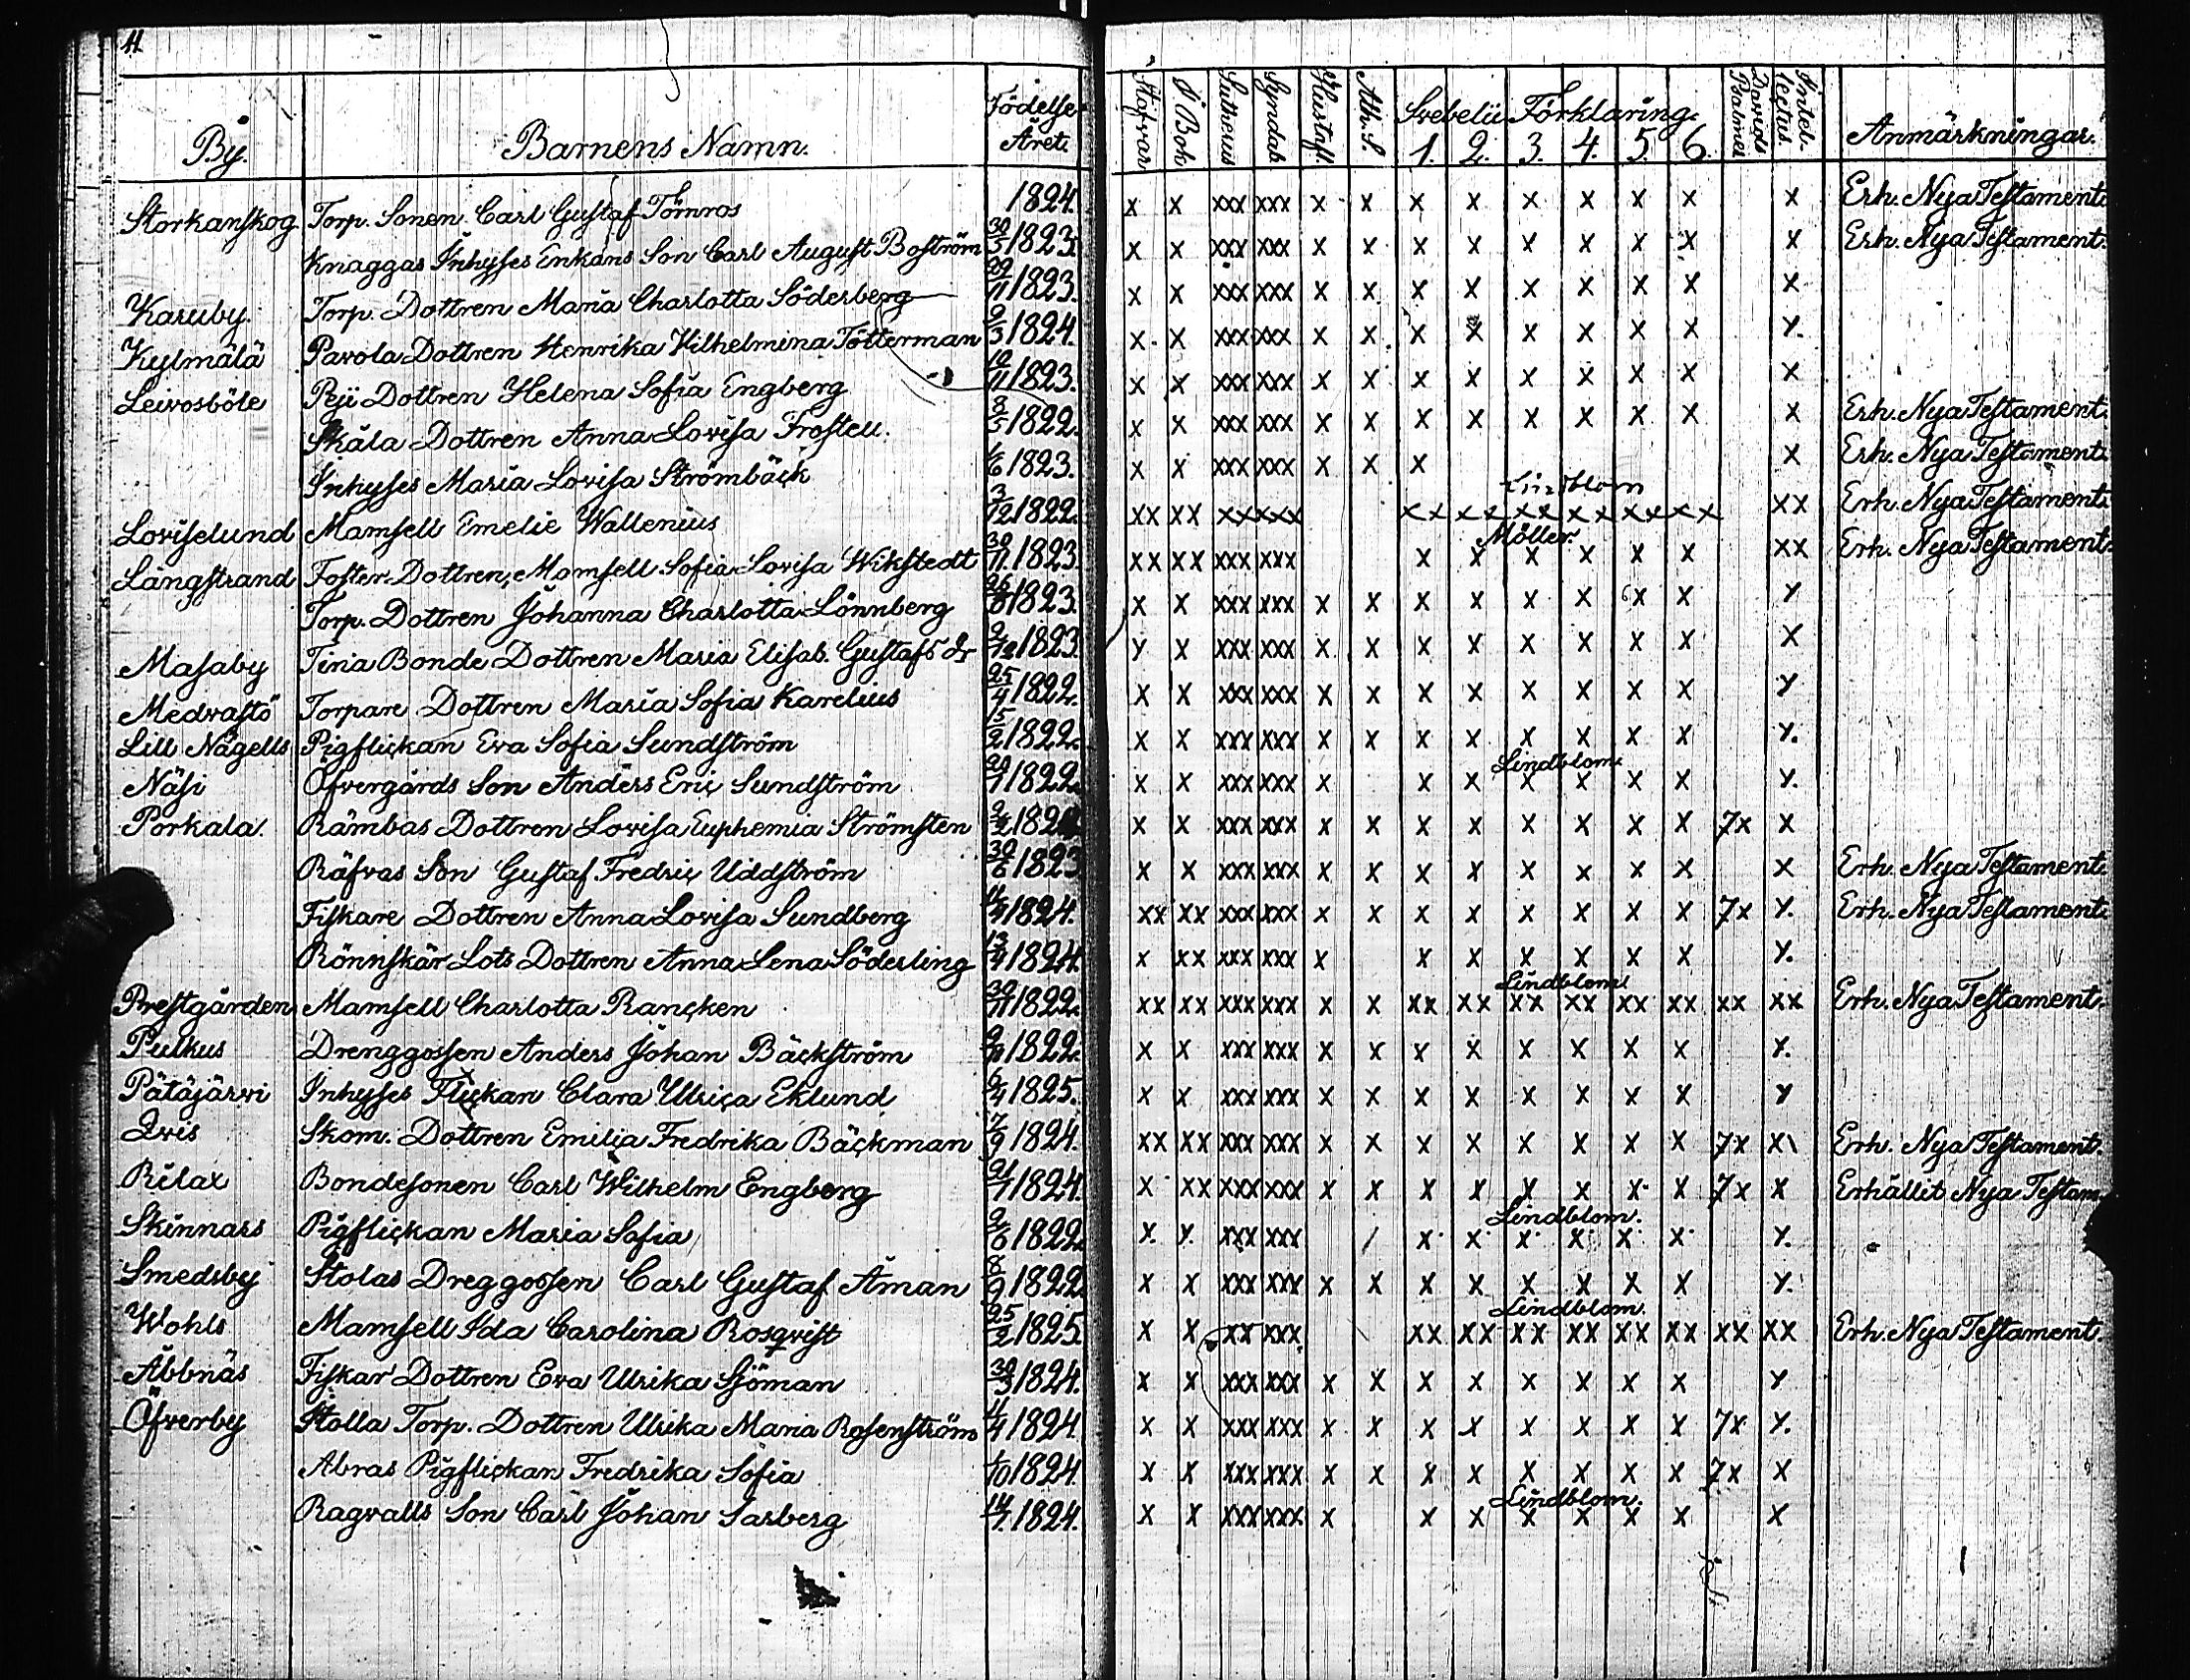 11.
By. Barnens Namn. Födelse Året. Stafvar I Bok Lutherus Syndab. Hustafl. Ath. S. Svebelii Förklaring. 1. 2. 3. 4. 5. 6. Davids Psalmer Intellectus. Anmärkningar.
Storkanskog Torp. Sonen Carl Gustaf Törnros 1824. x x xxx xxx x x x x x x x x x Erh. Nya Testament.
Knaggas Inhyses Enkans Son Carl August Boström 30/5 1823. x x xxx xxx x x x x x x x x x Erh. Nya Testament.
Karuby Torp. Dottren Maria Charlotta Söderberg 29/11 1823. x x xxx xxx x x x x x x x x x
Kylmälä Pavola Dottren Henrika Vilhelmina Tötterman 9/3 1824. x x xxx xxx x x x x x x x x x
Leivosböle Pyii Dottren Helena Sofia Engberg 10/11 1823. x x xxx xxx x x x x x x x x x
Skåla Dottren Anna Lovisa Frostell. 8/5 1822. x x xxx xxx x x x x x x x x x Erh. Nya Testament.
Inhyses Maria Lovisa Strömbäck 1/6 1823. x x xxx xxx x x x x Erh. Nya Testament.
Lindblom
Loviselund Mamsell Emelie Wallenius 3/12 1822. xx xx xxx xxx xx xx xx xx xx xx xx Erh. Nya Testament.
Möller.
Långstrand Foster Dottren, Mamsell Sofia Lovisa Wikstedt 30/11 1823. xx xx xxx xxx x x x x x x xx Erh. Nya Testament.
Torp. Dottren Johanna Charlotta Lönnberg 26/8 1823. x x xxx xxx x x x x x x x x x
Masaby Tinia Bonde Dottren Maria Elisab. Gustafs dr 9/12 1823. x x xxx xxx x x x x x x x x x
Medvastö Torpare Dottren Maria Sofia Karelius 25/4 1822. x x xxx xxx x x x x x x x x x
Lill Nägells Pigflickan Eva Sofia Sundström 15/2 1822. x x xxx xxx x x x x x x x x x
Lindblom.
Näsi Öfvergårds Son Anders Eric Sundström 1822. x x xxx xxx x x x x x x x x
Porkala. Rämbas Dottren Lovisa Euphemia Strömsten x x xxx xxx x x x x x x x x 7x x
Räfvas Son Gustaf Fredric Uddström 30/6 1823 x x xxx xxx x x x x x x x x x Erh. Nya Testament.
Fiskare Dottren Anna Lovisa Sundberg 1824. xx xx xxx xxx x x x x x x x x 7x x Erh. Nya Testament.
Rönnskär Lots Dottren Anna Lena Söderling 13/4 1824. x xx xxx xxx x x x x x x x x
Lindblom
Prestgården Mamsell Charlotta Rancken 30/11 1822. xx xx xxx xxx x x xx xx xx xx xx xx xx xx Erh. Nya Testament.
Pulkus Drenggossen Anders Johan Bäckström 9/10 1822. x x xxx xxx x x x x x x x x x
Pätäjärvi Inhyses Flickan Clara Ulrica Eklund 6/4 1825. x x xxx xxx x x x x x x x x x
Qvis Skom. Dottren Emilia Fredrika Bäckman 7/9 1824. xx xx xxx xxx x x x x x x x x 7x x\ Erh. Nya Testament.
Rilax Bondesonen Carl Wilhelm Engberg 21/7 1824. x xx xxx xxx x x x x x x x x 7x x Erhållit Nya Testam.
Lindblom.
Skinnars Pigflickan Maria Sofia 1822. x x xxx xxx / x x x x x x x
Smedsby Stolas Dreggossen Carl Gustaf Åman 8/9 1822. x x xxx xxx x x x x x x x x x
Lindblom.
Wohls Mamsell Ida Carolina Rosqvist 25/2 1825. x x xx xxx xx xx xx xx xx xx xx xx Erh. Nya Testament.
Åbbnäs Fiskar Dottren Eva Ulrika Sjöman 30/3 1824. x x xxx xxx x x x x x x x x x
Öfverby Stolla Torp. Dottren Ulrika Maria Rosenström 11/4 1824. x x xxx xxx x x x x x x x x 7x x
Abras Pigflickan Fredrika Sofia 1/10 1824. x x xxx xxx x x x x x x x x 7x x
Lindblom.
Ragvalls Son Carl Johan Sarberg 14/7. 1824. x x xxx xxx x x x x x x x x